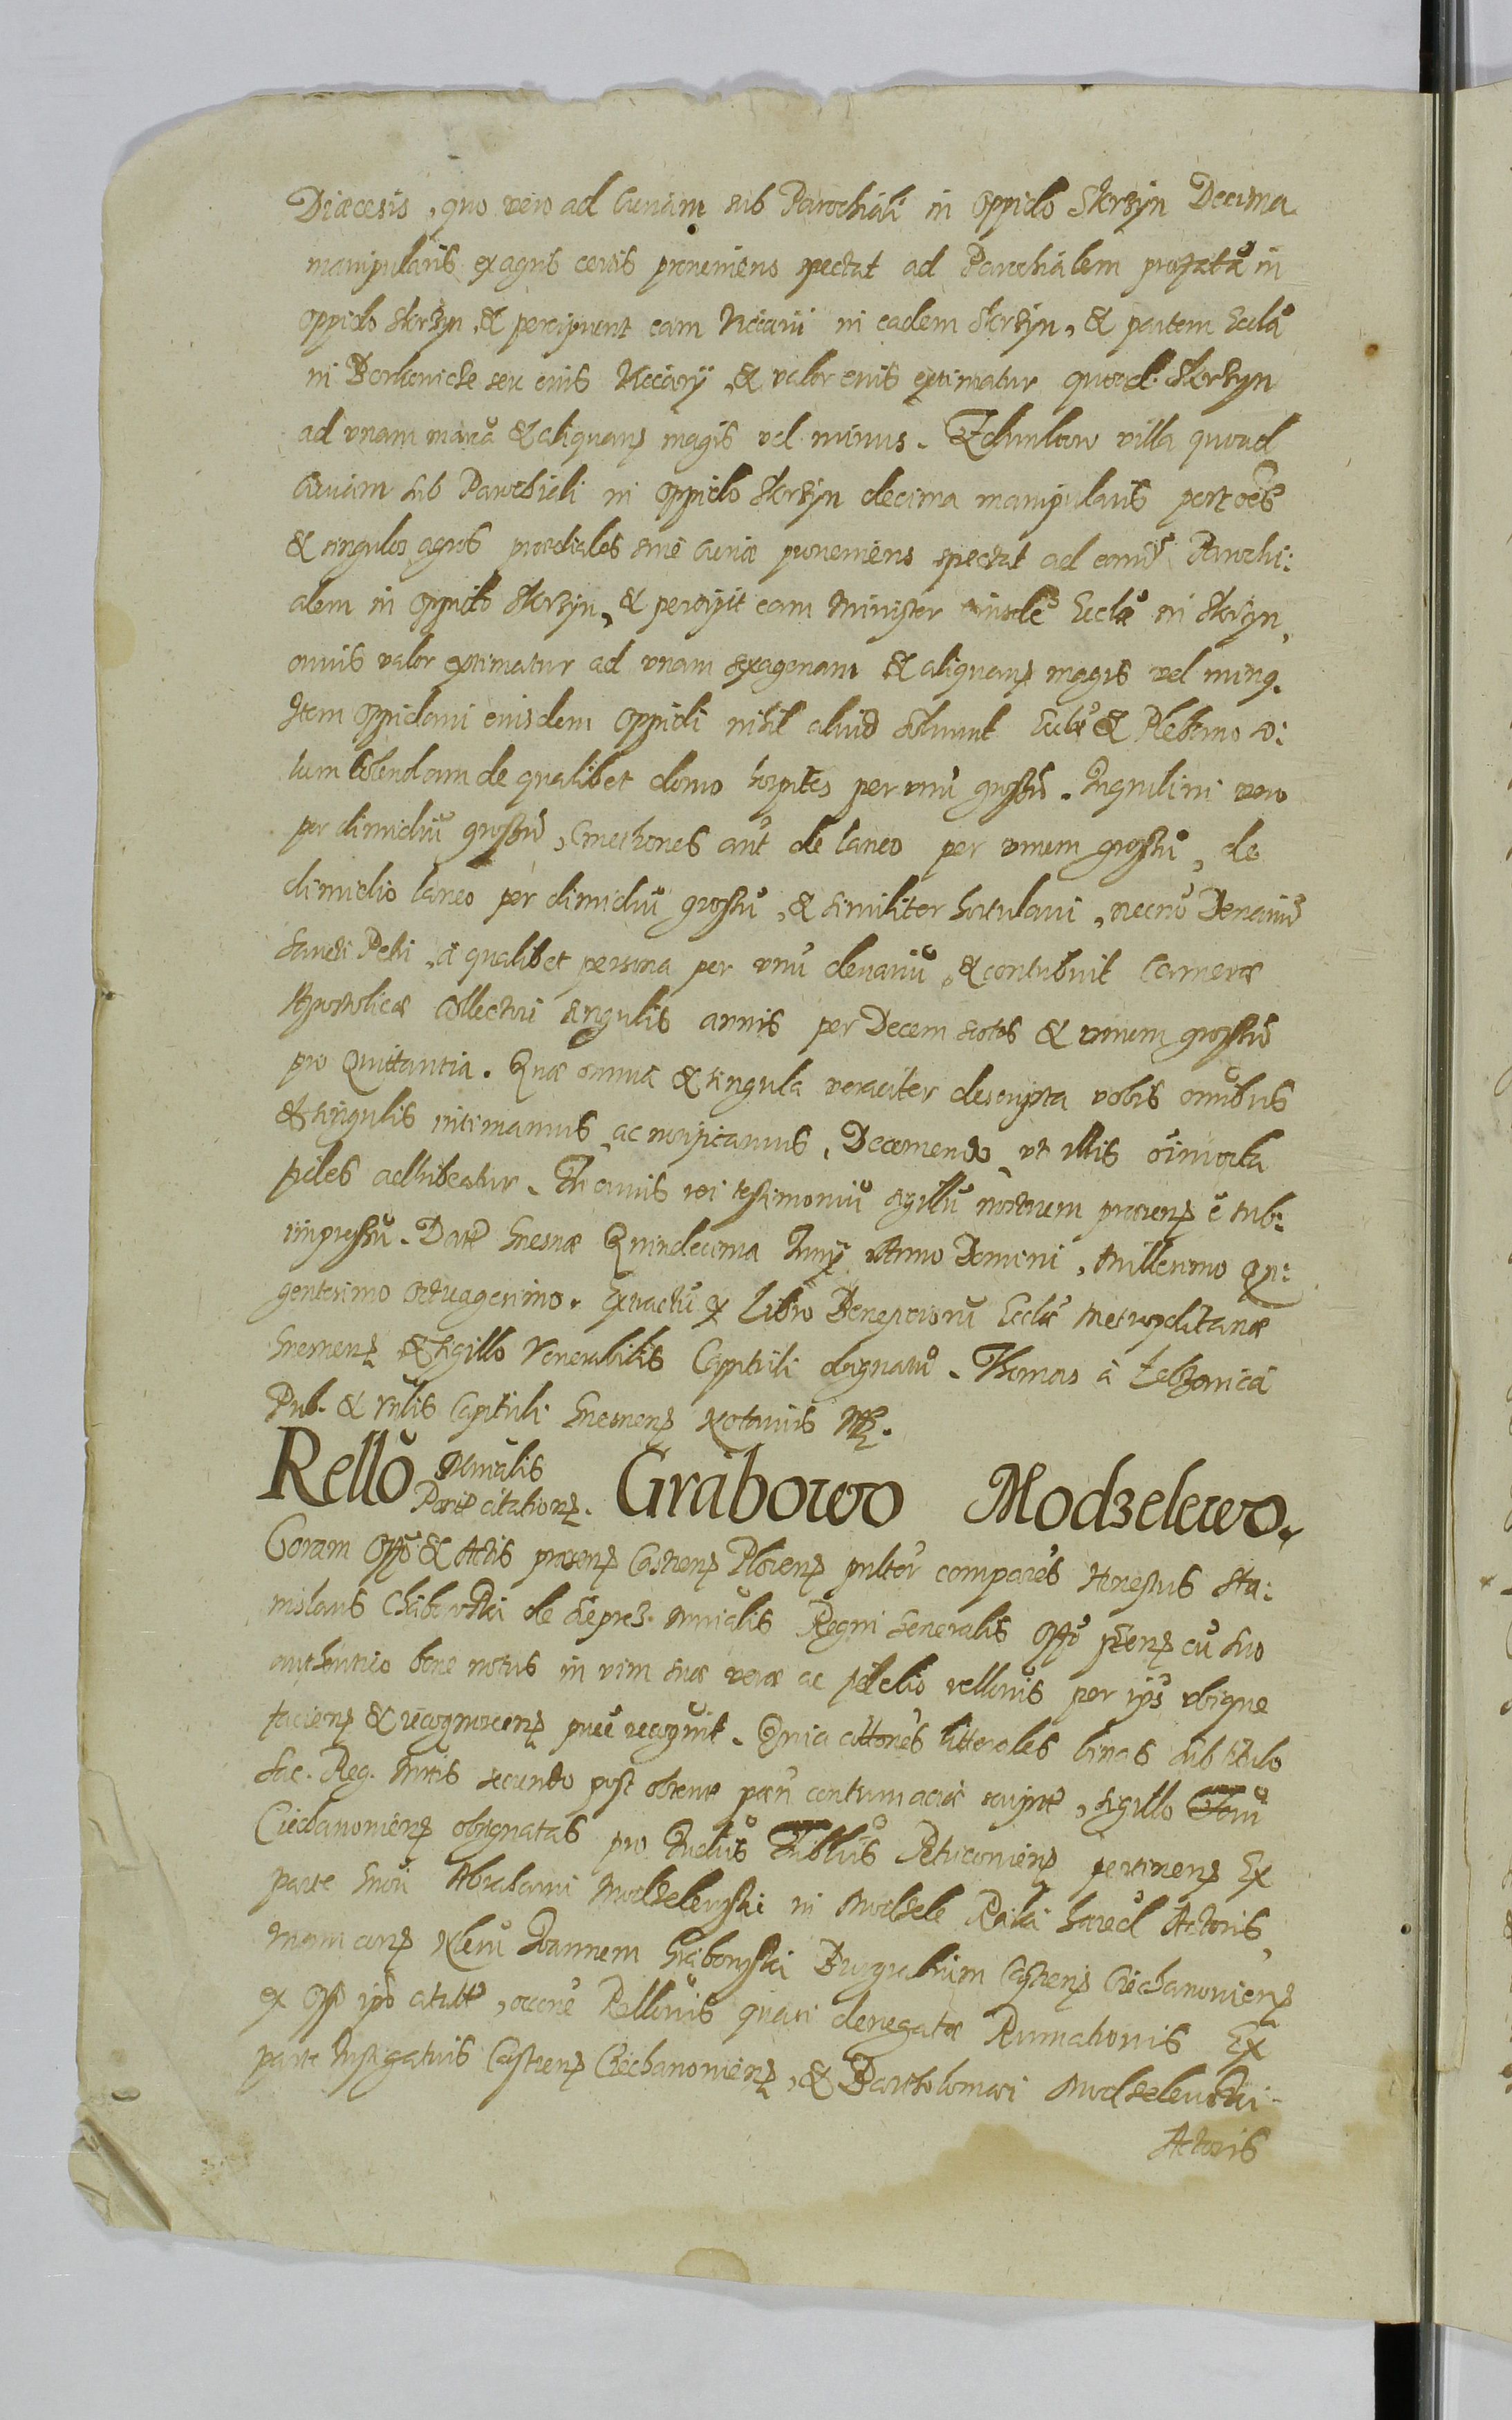 Diæcesis, quo vero ad Curiam sub Parochiali in oppido Skrzyn Decima
manipularis ex agris certis proueniens spectat ad Parochialem præfatā in
oppido Skrzyn, & percipiunt eam Vicarii in eadem Skrzyn, & partem Eccla
in Borkouicze seu euis Vicarij, & valor euis extimatur quoad Skrzyn
ad vnam marcā & aliquans magis vel minus. villa quoad
Curiam sub Parochiali in oppido Skrzyn decima manipularis post oēs
& singulos agros prædiales siue Curiæ proueniens spectat ad eand Parochi:
alem in oppido Skrzyn, & percipit eam Minister eiusdē Ecclæ in Skrzyn,
cuuis valor extimatur ad vnam sexagenam & aliquans magis vel ming.
Item oppidani euisdem oppidi nihil aliud soluunt Ecclæ & Plebano so:
lum Colendam de qualibet domo hospites per vnū grossū. Inquilini vero
per dimidiū grossū, Cmethones aut de laneo per vnum grossū, de
dimidio laneo per dimidiū grossū, & similiter hortulani, necnō Denariū
Sancti Petri, a qualibet persona per vnū denariū, & contribuit Cameræ
Apostolicæ Collectori singulis annis per Decem scotos & vnum grossū
pro Quittantia. Quæ omnia & singula veraciter descripta vobis omibus
& singulis intimamus, ac notificamus, Decernendo, vt illis oīmoda
fides adhibeatur. In cuius rei testimoniū sigillū nostrum præsens ē sub:
impressū. Datt Gnesnæ Quindecima Iunij Anno Domini, Millesimo Qn:
gentesimo octuagesimo. Extractū ex Libro Beneficiorū Ecclæ Metropolitanæ
Gnesnens & Sigillo Venerabilis Capituli obsignatū. Thomas à
Pub. & Capituli Gnesnens Notarius
Rello Mnialis
Partē citations. Grabowo Modzelewo.
Coram Offō & Actis præsens Castrens Plocens psonltēr comparēs Honestus Sta:
nislaus Chibowski de Mnialis Regni Generalis offō pntens cū suo
authentico bene notus in vim suæ veræ ac fidelis rellonis per ips vbique
faciens & recognoscens recogvit. Quia litterales binas sub titulo
Sac. Reg. Mttis secundo post obtent pœn contumaciæ script, sigillo
Ciechanoniens obsignatas pro pertinens Ex
parte Gnosi Abrahami Modzelewski in Modzele hæred Actoris,
Joannem Grabowski Burgrabium Castrens Ciechanouiens
ex offō ipō citatt, Rellonis quasi denegatæ Rumationis Ex
parte Instigatoris Castrens Ciechanouiens, & Bartholomæi Modzelewski
Actoris